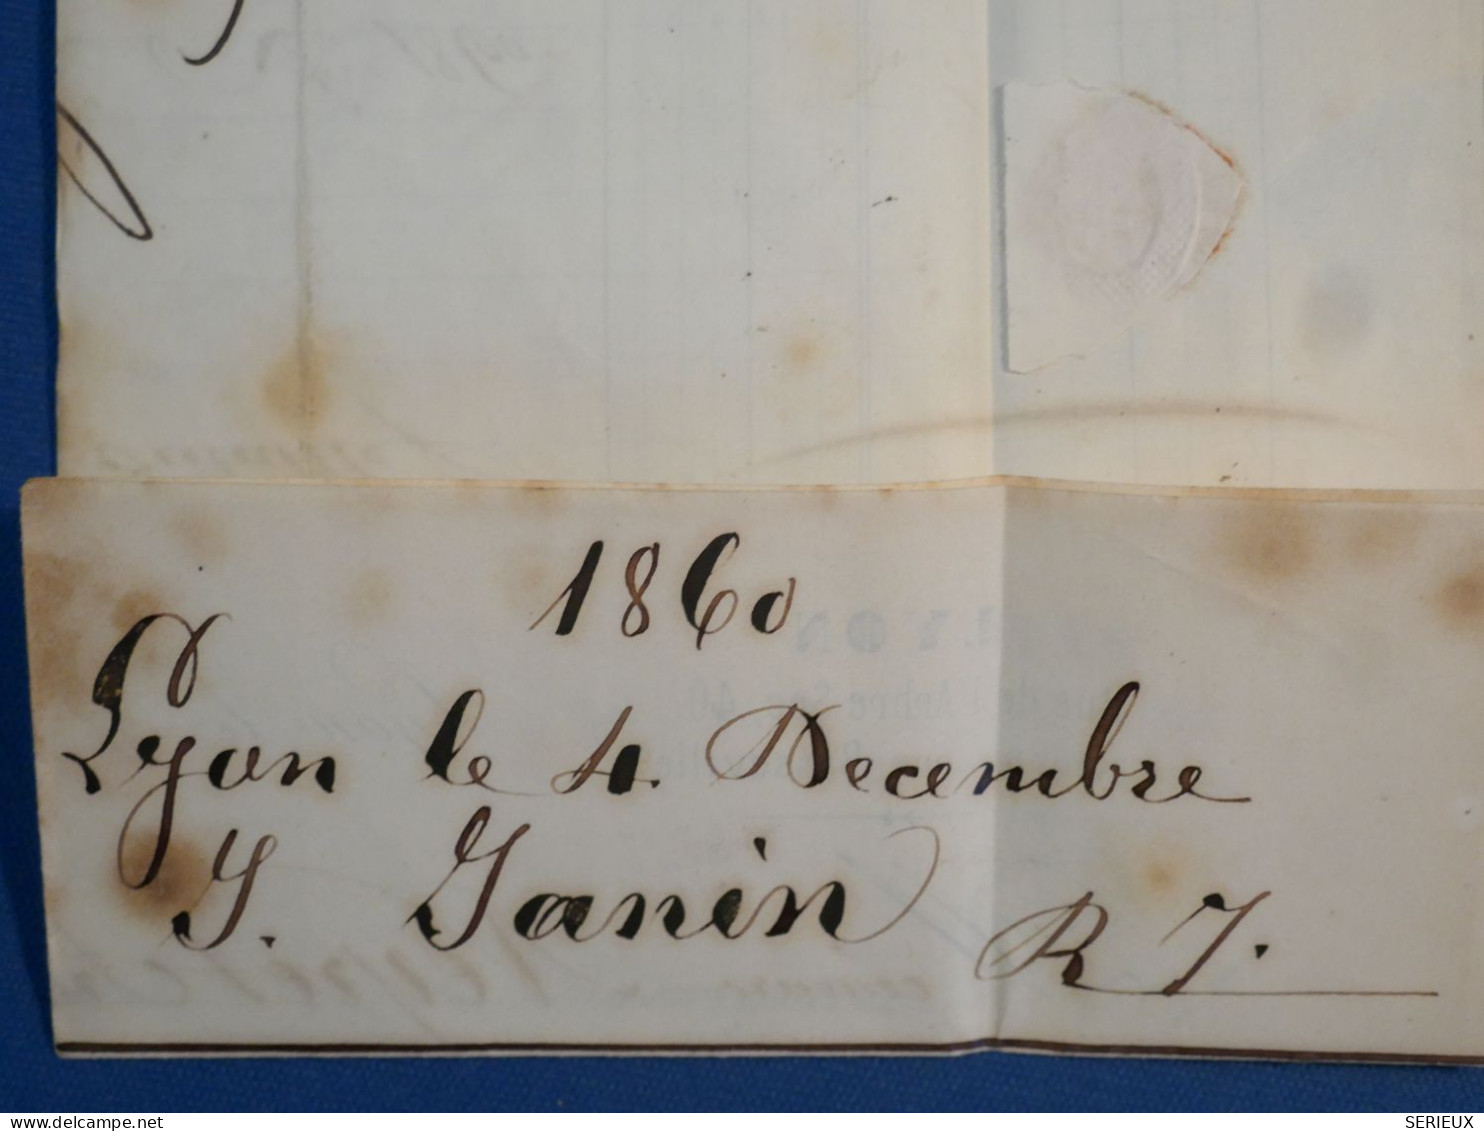 1860
Lyon le 4. Decembre
J. Janin R J.
delcampe.net
SERIEUX